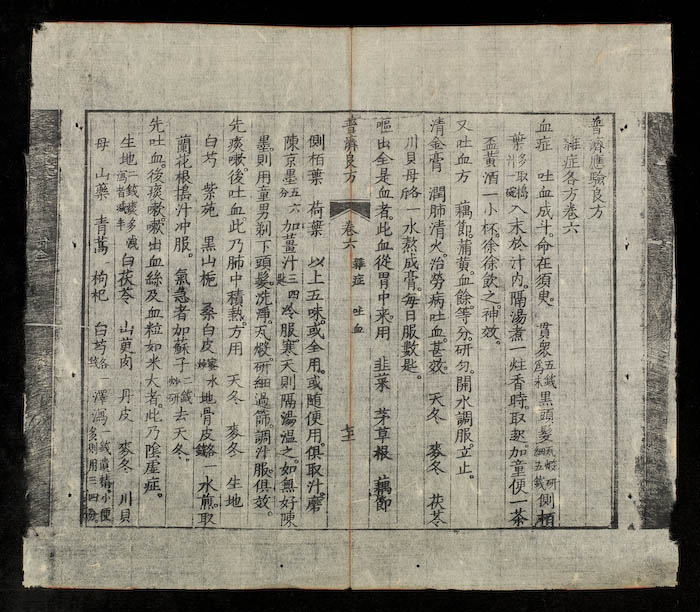 普濟應驗良方
雜症各方卷六
血症 吐血成斗。命在須臾。 貫衆五錢為末黑頭髮瓦煅研細五錢側柏
葉多取搗汁一碗入末於汁內。隔湯煮一炷香時。取起。加童便一茶
盃黃酒一小杯。徐徐飲之。神效。
又吐血方 藕節。蒲黃。血餘。等分。研勻。開水調服。立止。
清金膏 潤肺清火。治勞病吐血。甚效。 天冬 麥冬 茯苓
川貝母各一水熬成膏。每日服數匙。
嘔出全是血者。此血從胃中來。用 韭菜 茅草根 藕節
普濟良方 卷六 雜症 吐血
側栢葉 荷葉 以上五味。或全用。或隨便用。俱取汁。磨
陳京墨五六分加薑汁三四匙冷服。寒天則隔湯溫之。如無好陳
墨則用童男剃下頭髮。洗淨。瓦煅。研細過篩。調汁服。俱效。
先痰嗽。後吐血。此乃肺中積熱。方用 天冬 麥冬 生地
白芍 紫菀 黑山梔 桑白皮蜜水炒地骨皮各一錢水煎。取
蘭花根搗汁冲服。 氣急者加蘇子二錢炒研去天冬。
先吐血。後痰嗽。嗽出血絲及血粒如米大者。此乃陰虛症。
生地二錢痰多瀉者減半白茯苓 山萸肉 丹皮 麥冬 川貝
母 山藥 青蒿 枸杞 白芍各一錢澤瀉一錢遺精小便多則用三四分